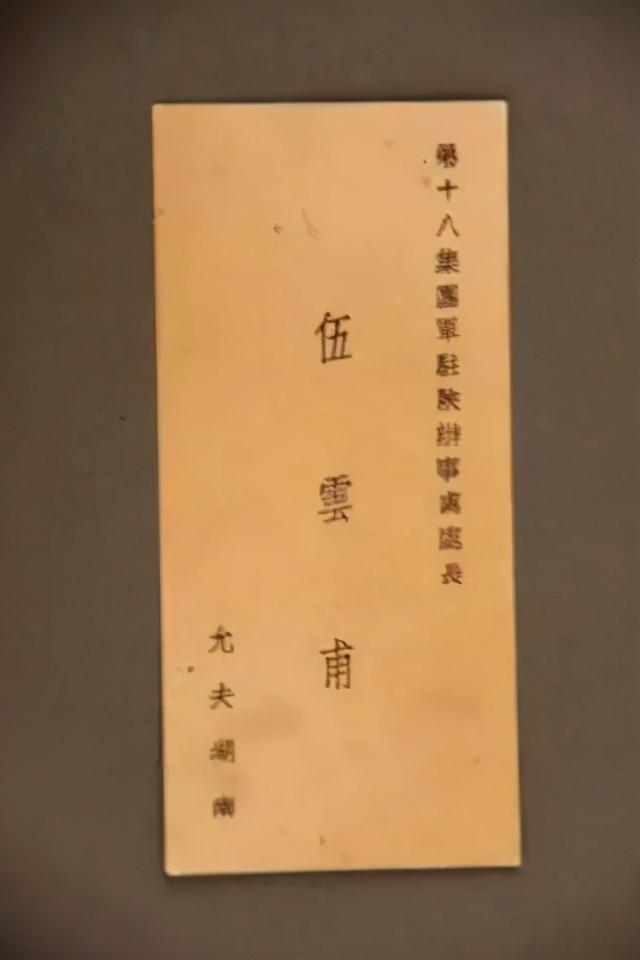 第十八集團軍駐陝辦事處處長
伍雲甫
允夫湖南